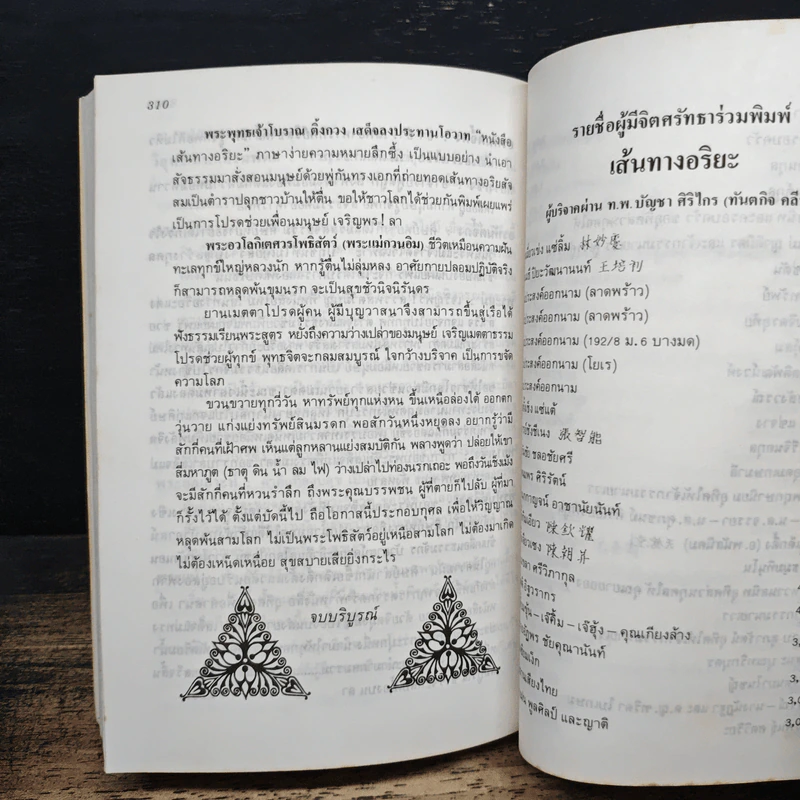 310
พระพุทธเจ้าโบราณ ติ้งกวง เสด็จลงประทานโอวาท "หนังสือ
เส้นทางอริยะ" ภาษาง่ายความหมายลึกซึ้ง เป็นแบบอย่าง นำเอา
สัจธรรมมาสั่งสอนมนุษย์ด้วยพู่กันทรงเอกที่ถ่ายทอดเส้นทางอริยสัจ
สมเป็นตำราปลุกชาวบ้านให้ตื่น ขอให้ชาวโลกได้ช่วยกันพิมพ์เผยแพร่
เป็นการโปรดช่วยเพื่อนมนุษย์ เจริญพร! ลา
พระอวโลกิเตศวรโพธิสัตว์ (พระแม่กวนอิม) ชีวิตเหมือนความฝัน
ทะเลทุกข์ใหญ่หลวงนัก หากรู้ตื่นไม่ลุ่มหลง อาศัยกายปลอมปฏิบัติจริง
ก็สามารถหลุดพ้นขุมนรก จะเป็นสุขชั่วนิจนิรันดร
ยานเมตตาโปรดผู้คน ผู้มีบุญวาสนาจึงสามารถขึ้นสู่เรือได้
ฟังธรรมเรียนพระสูตร หยั่งถึงความว่างเปล่าของมนุษย์ เจริญเมตตาธรรม
โปรดช่วยผู้ทุกข์ พุทธจิตจะกลมสมบูรณ์ ใจกว้างบริจาค เป็นการขจัด
ความโลภ
ขวนขวายทุกวี่วัน หาทรัพย์ทุกแห่งหน ขึ้นเหนือล่องใต้ ออกตก
วุ่นวาย แก่งแย่งทรัพย์สินมรดก พอสักวันหนึ่งหยุดลง อยากรู้ว่ามี
สักกี่คนที่เฝ้าศพ เห็นแต่ลูกหลานแย่งสมบัติกัน พลางพูดว่า ปล่อยให้เขา
สี่มหาภูต (ธาตุ ดิน น้ำ ลม ไฟ) ว่างเปล่าไปท่องนรกเถอะ พอถึงวันเช็งเม้ง
จะมีสักกี่คนที่หวนรำลึก ถึงพระคุณบรรพชน ผู้ที่ตายก็ไปลับ ผู้ที่มา
ก็รั้งไว้ได้ ตั้งแต่บัดนี้ไป ถือโอกาสนี้ประกอบกุศล เพื่อให้วิญญาณ
หลุดพ้นสามโลก ไม่เป็นพระโพธิสัตว์อยู่เหนือสามโลก ไม่ต้องมาเกิด
ไม่ต้องเหน็ดเหนื่อย สุขสบายเสียยิ่งกระไร
จบบริบูรณ์
รายชื่อผู้มีจิตศรัทธาร่วมพิมพ์
เส้นทางอริยะ
ผู้บริจาคผ่าน ท.พ. บัญชา ศิริไกร (ทันตกิจ
แซ่ลิ้ม 林妙
ปิยะวัฒนานนท์ 王培刊
ประสงค์ออกนาม (ลาดพร้าว)
ประสงค์ออกนาม (ลาดพร้าว)
ประสงค์ออกนาม (192/8 ม.6 บางมด)
ประสงค์ออกนาม (โยเร)
ประสงค์ออกนาม
แซ่แต้
張智能
ชลอชัยศรี
ศิริรัตน์
กาญจน์ อาชานัยนันท์
陳欽耀
陳朝昇
ศรีวิภากุล
รากร
เจ๊คิ้ม – เจ๊ฮุ้ง – คุณเกียงล้าง
พร ชัยคุณานันท์
เสียงไทย
พูลศิลป์ และญาติ
3,0
3,
3,0